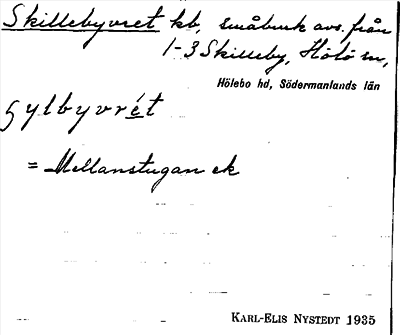 Skillebyvret kb, småbruk avs. från
1-3 Skilleby, Hölö sn,
Hölebo hd, Södermanlands län
ʃylbyvrét
= Mellanstugan ek
KARL-ELIS NYSTEDT 1935